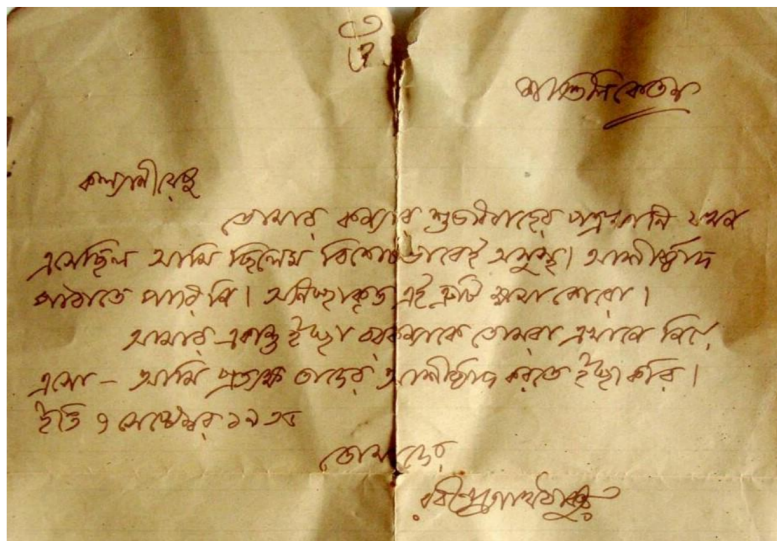 ওঁ
শান্তিনিকেতন
কল্যাণীয়েষু
তোমার কন্যার শুভবিবাহের পত্রখানি যখন
এসেছিল আমি ছিলেম বিশেষভাবেই অসুস্থ। আশীর্ব্বাদ
পাঠাতে পারিনি। অনিচ্ছাকৃত এই ত্রুটি ক্ষমা কোরো।
আমার একান্ত ইচ্ছা বরকন্যাকে তোমরা এখানে নিয়ে
এসো — আমি প্রত্যক্ষ তাদের আশীর্ব্বাদ করতে ইচ্ছা করি।
ইতি ৭ সেপ্টেম্বর ১৯৩৮
তোমাদের
রবীন্দ্রনাথ ঠাকুর